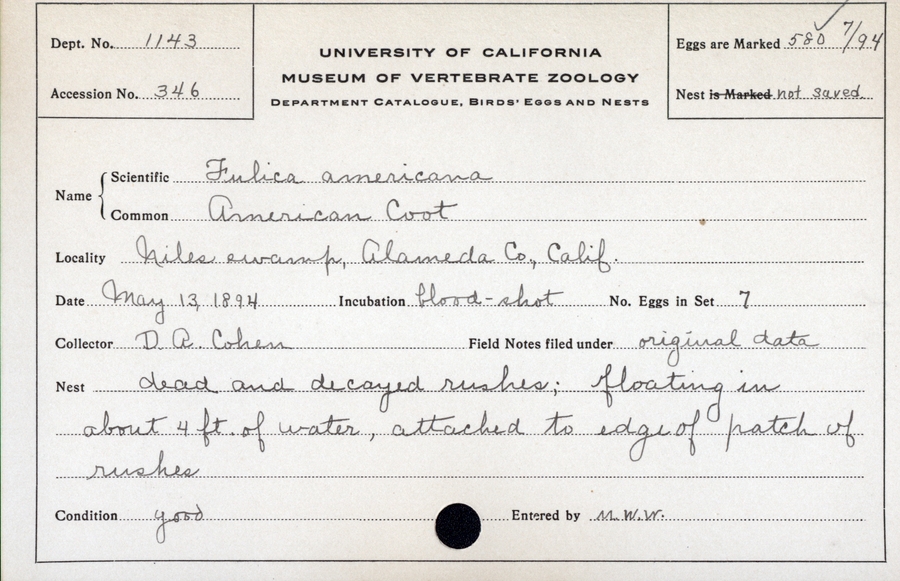 Dept. No. 1143
Accession No. 346
UNIVERSITY OF CALIFORNIA
MUSEUM OF VERTEBRATE ZOOLOGY
DEPARTMENT CATALOGUE, BIRDS' EGGS AND NESTS
Eggs are Marked 580 7/94
Nest is Marked not saved
Name
Scientific Fulica americana
Common American Coot
Locality Niles swamp, Alameda Co., Calif.
Date May 13, 1894 Incubation blood-shot No. Eggs in Set 7
Collector D. A. Cohen Field Notes filed under original data
Nest dead and decayed rushes; floating in
about 4 ft. of water, attached to edge of patch of
rushes
Condition good Entered by M.W.W.